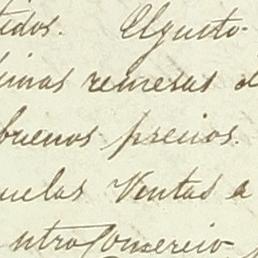 tidos. El gusto
timas remesas d
buenos precios.
uelas Ventas a
ntro Comercio